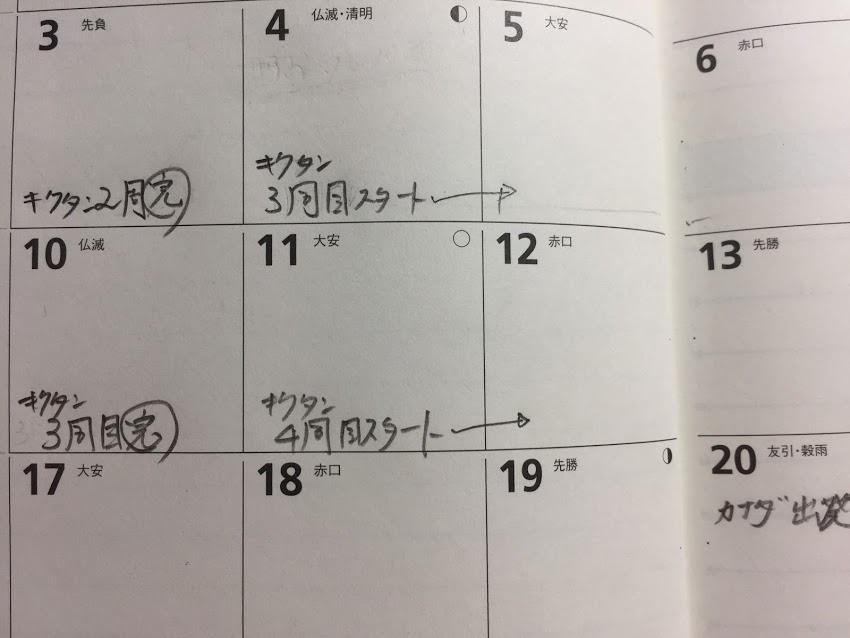 3 先負
4 仏滅・清明
5 大安
6 赤口
キクタン2周完
キクタン
3周目スタート
10 仏滅
11 大安
12 赤口
13 先勝
キクタン
3周目完
キクタン
4周目スタート
17 大安
18 赤口
19 先勝
20 友引・穀雨
カナダ出発